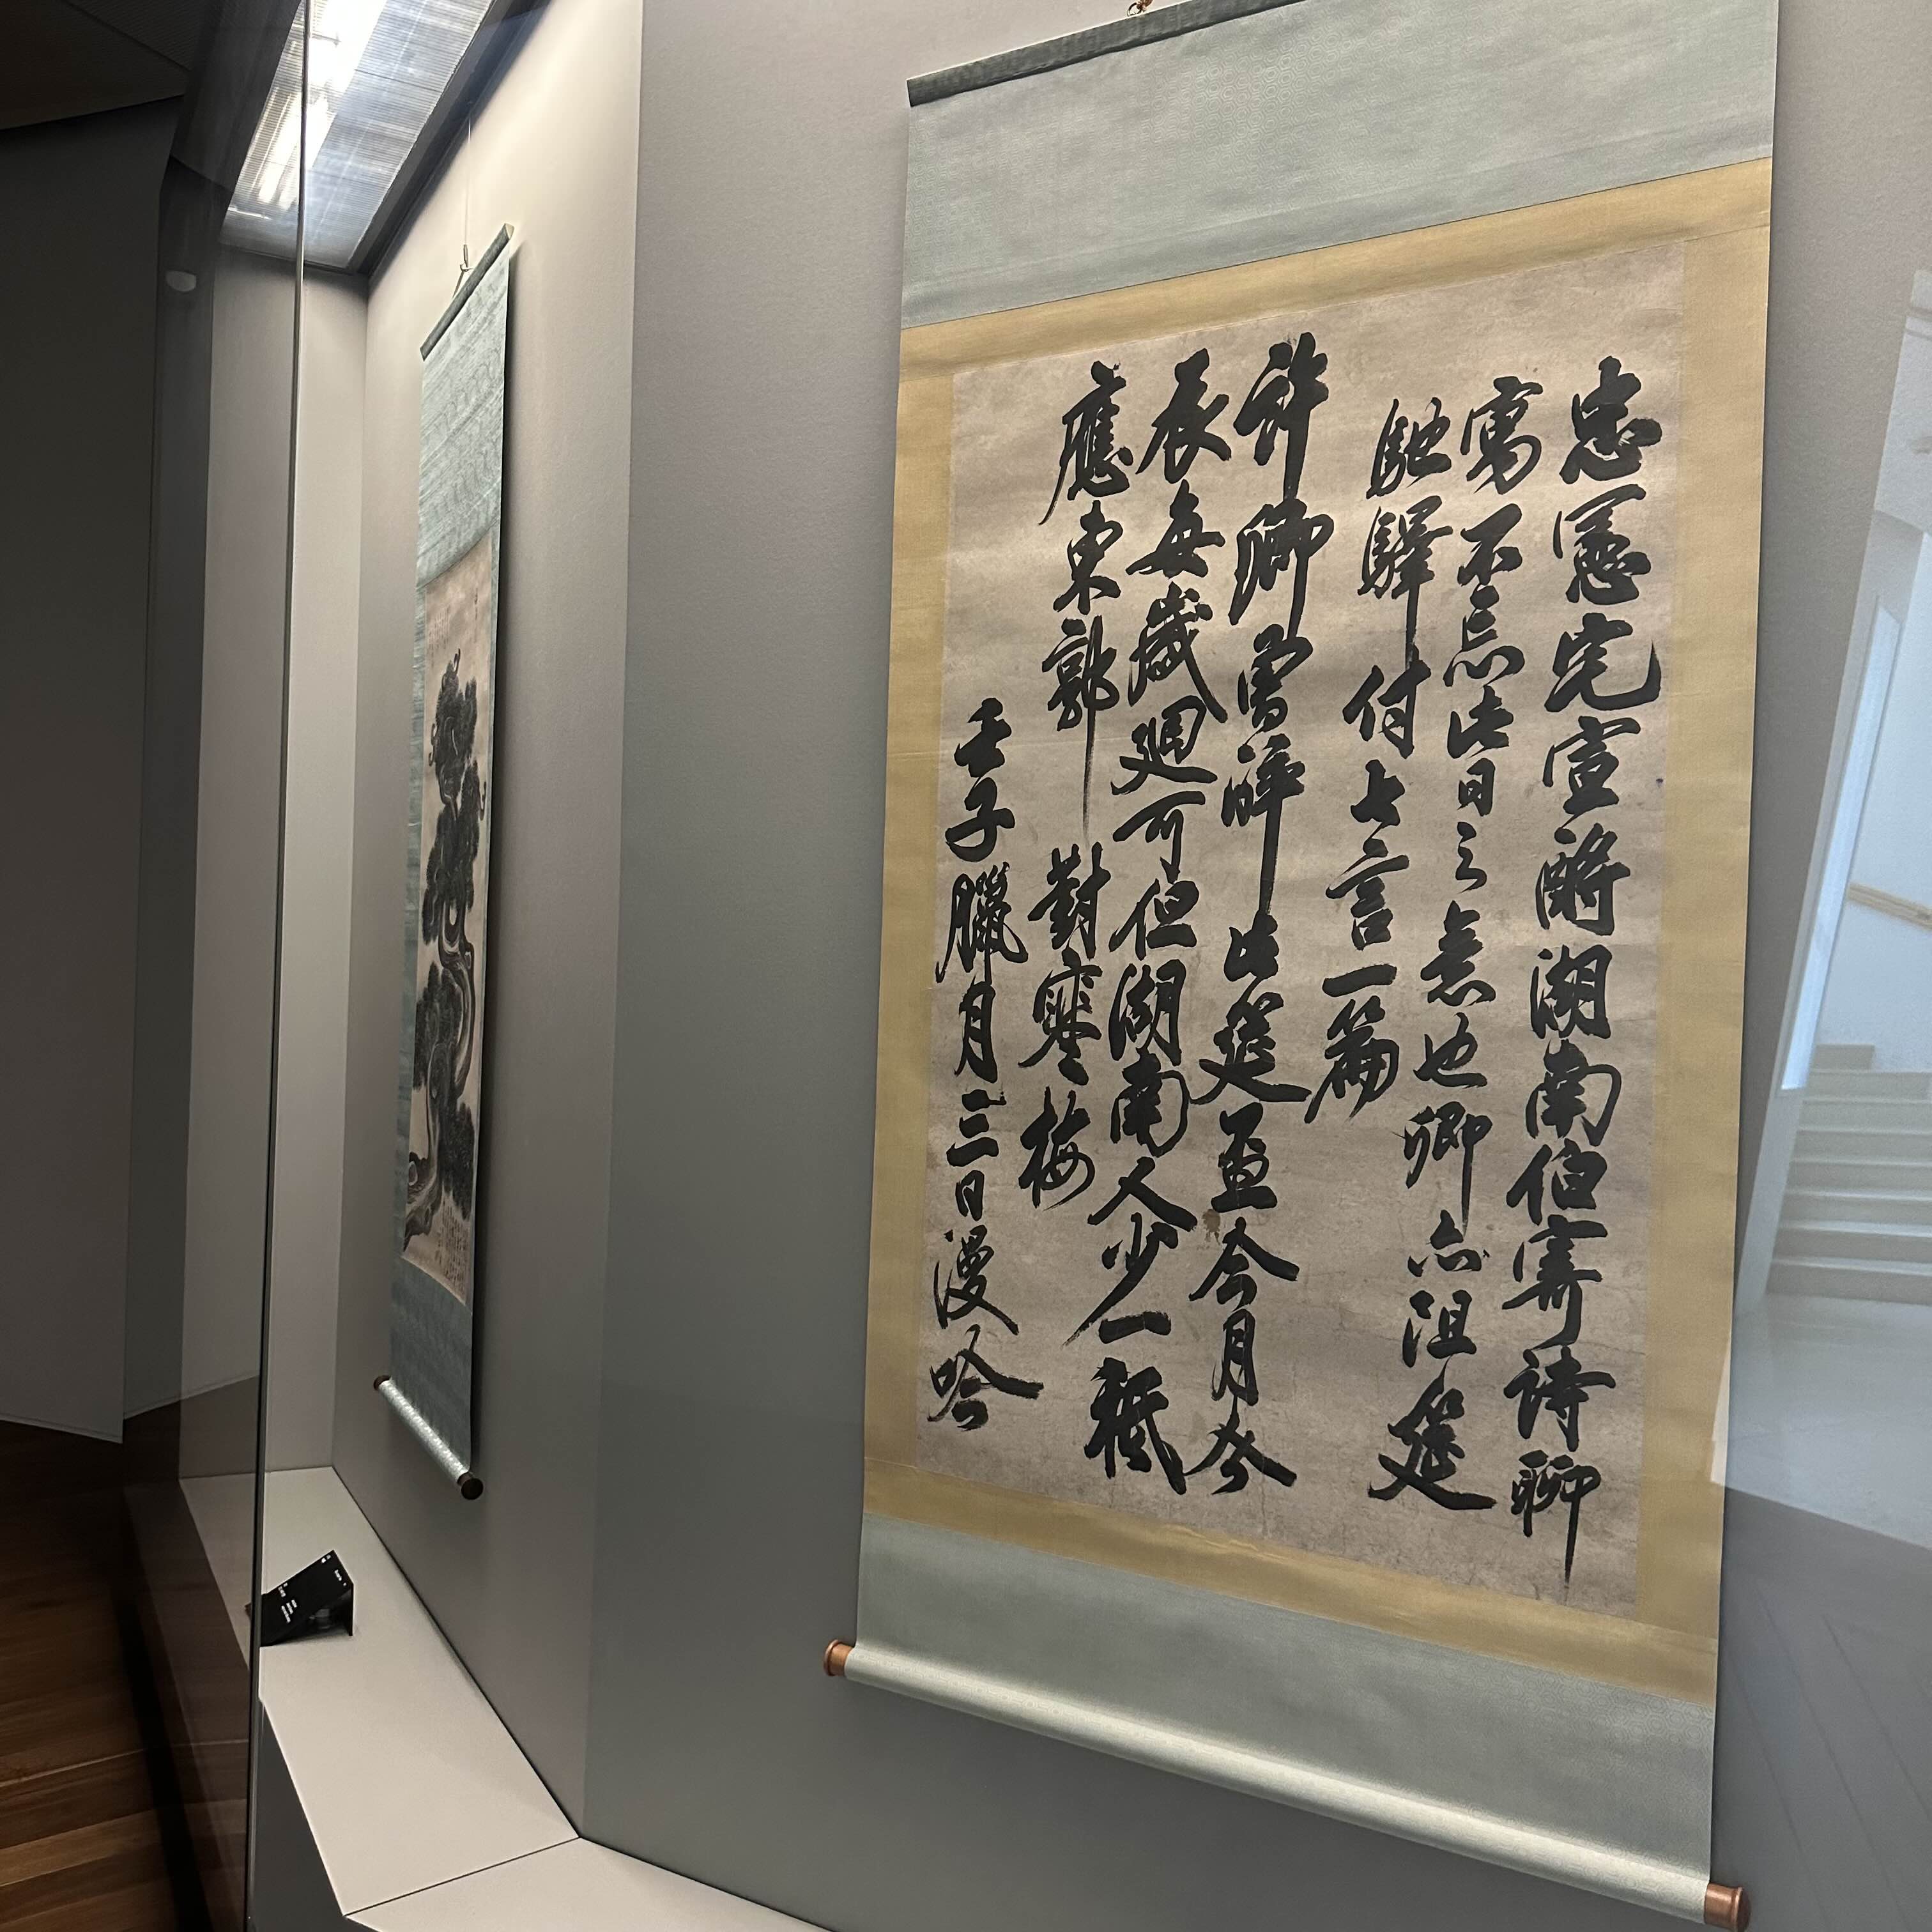 忠憲宅宣酹湖南伯寄詩聊
寓不忘此日之意也卿亦阻筵
馳驛付七言一篇
許卿曾醉此筵盃今月今
辰每歲廻可但湖南人少一秖
應東郭對寒梅
壬子臘月三日漫吟